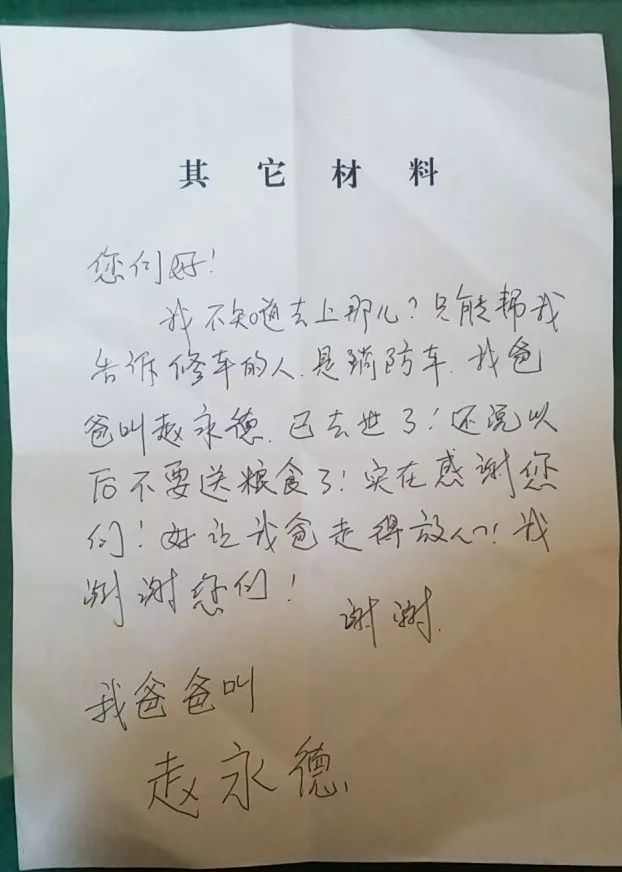 其它材料
您们好!
我不知道去上那儿?只能帮我
告诉修车的人.是消防车.我爸
爸叫赵永德.已去世了!还说以
后不要送粮食了!实在感谢您
们!好让我爸走得放心!我
谢谢您们!
谢谢.
我爸爸叫
赵永德.